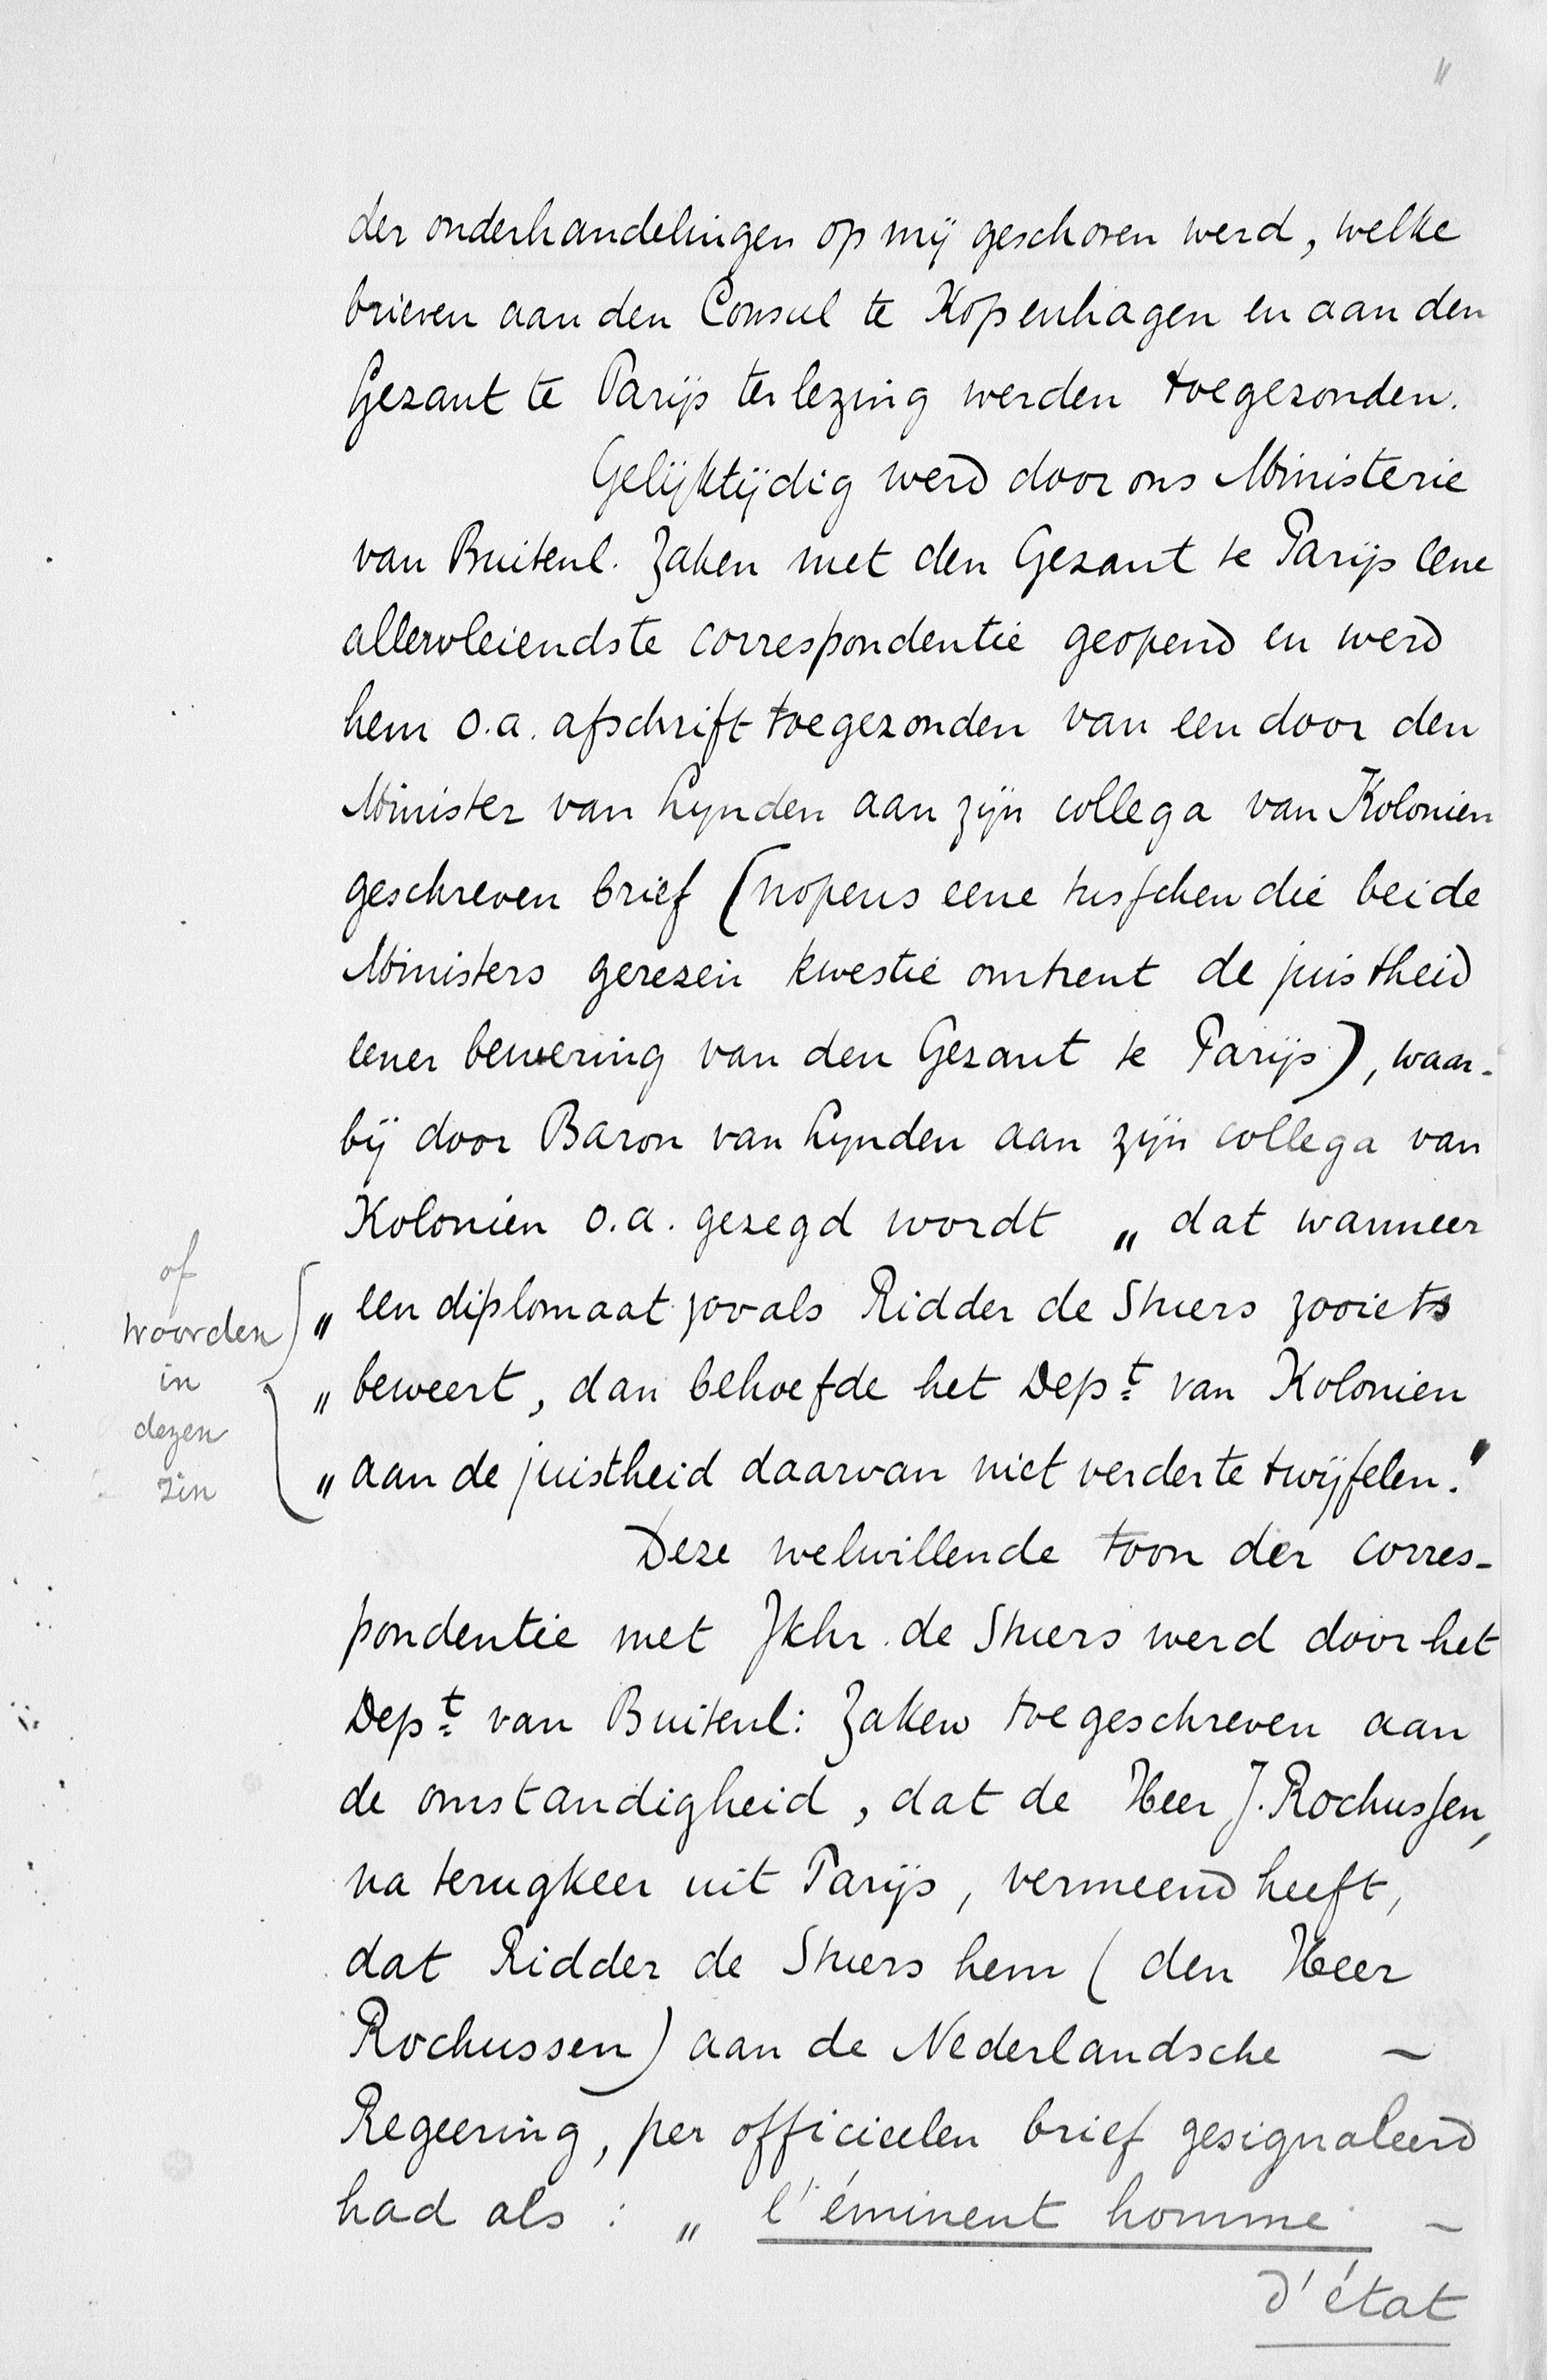 "
der onderhandelingen op mij geschoven werd, welke
brieven aan den Consul te Kopenhagen en aan den
Gezant te Parijs ter lezing werden toegezonden.
Gelijktijdig werd door ons Ministerie
van Buitenl. Zaken met den Gezant te Parijs eene
allervleiendste correspondentie geopend en werd
hem o.a. afschrift toegezonden van een door den
Minister van Lynden aan zijn collega van Kolonien
geschreven brief (nopens eene tusschen die beide
Ministers gerezen kwestie omtrent de juistheid
eener bewering van den Gezant te Parijs), waar-
bij door Baron van Lynden aan zijn collega van
Kolonien o.a. gezegd wordt „ dat wanneer
„ een diplomaat zooals Ridder de Stuers zooiets
„ beweert, dan behoefde het Dept van Kolonien
„ aan de juistheid daarvan niet verder te twijfelen."
of
woorden
in
dezen
zin
Deze welwillende toon der corres-
pondentie met Jkhr. de Stuers werd door het
Dept van Buitenl: Zaken toegeschreven aan
de omstandigheid, dat de Heer J. Rochussen,
na terugkeer uit Parijs, vermeend heeft,
dat Ridder de Stuers hem (den Heer
Rochussen) aan de Nederlandsche ~
Regeering, per officieelen brief gesignaleerd
had als : „ l'éminent homme ~
d'état